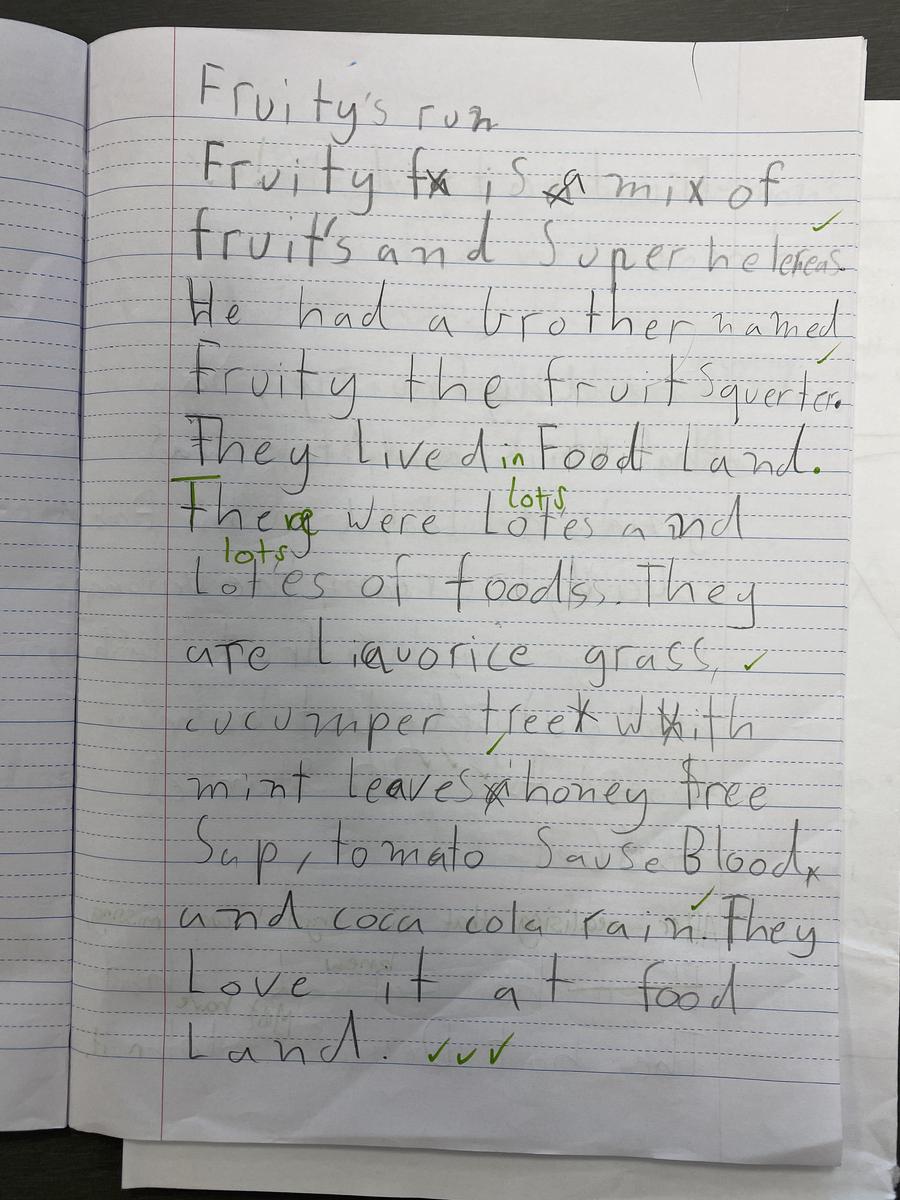 Fruity's run
Fruity is a mix of
fruit's and Super he
He had a brother named
Fruity the fruit Squerter.
They Lived in Food Land.
There were Lotes lots and
Lotes lots of foods. They
are Liquorice grass,
cucumper tree with
mint leaves, honey tree
Sap, tomato Sause Blood
and coca cola rain. They
Love it at food
Land.